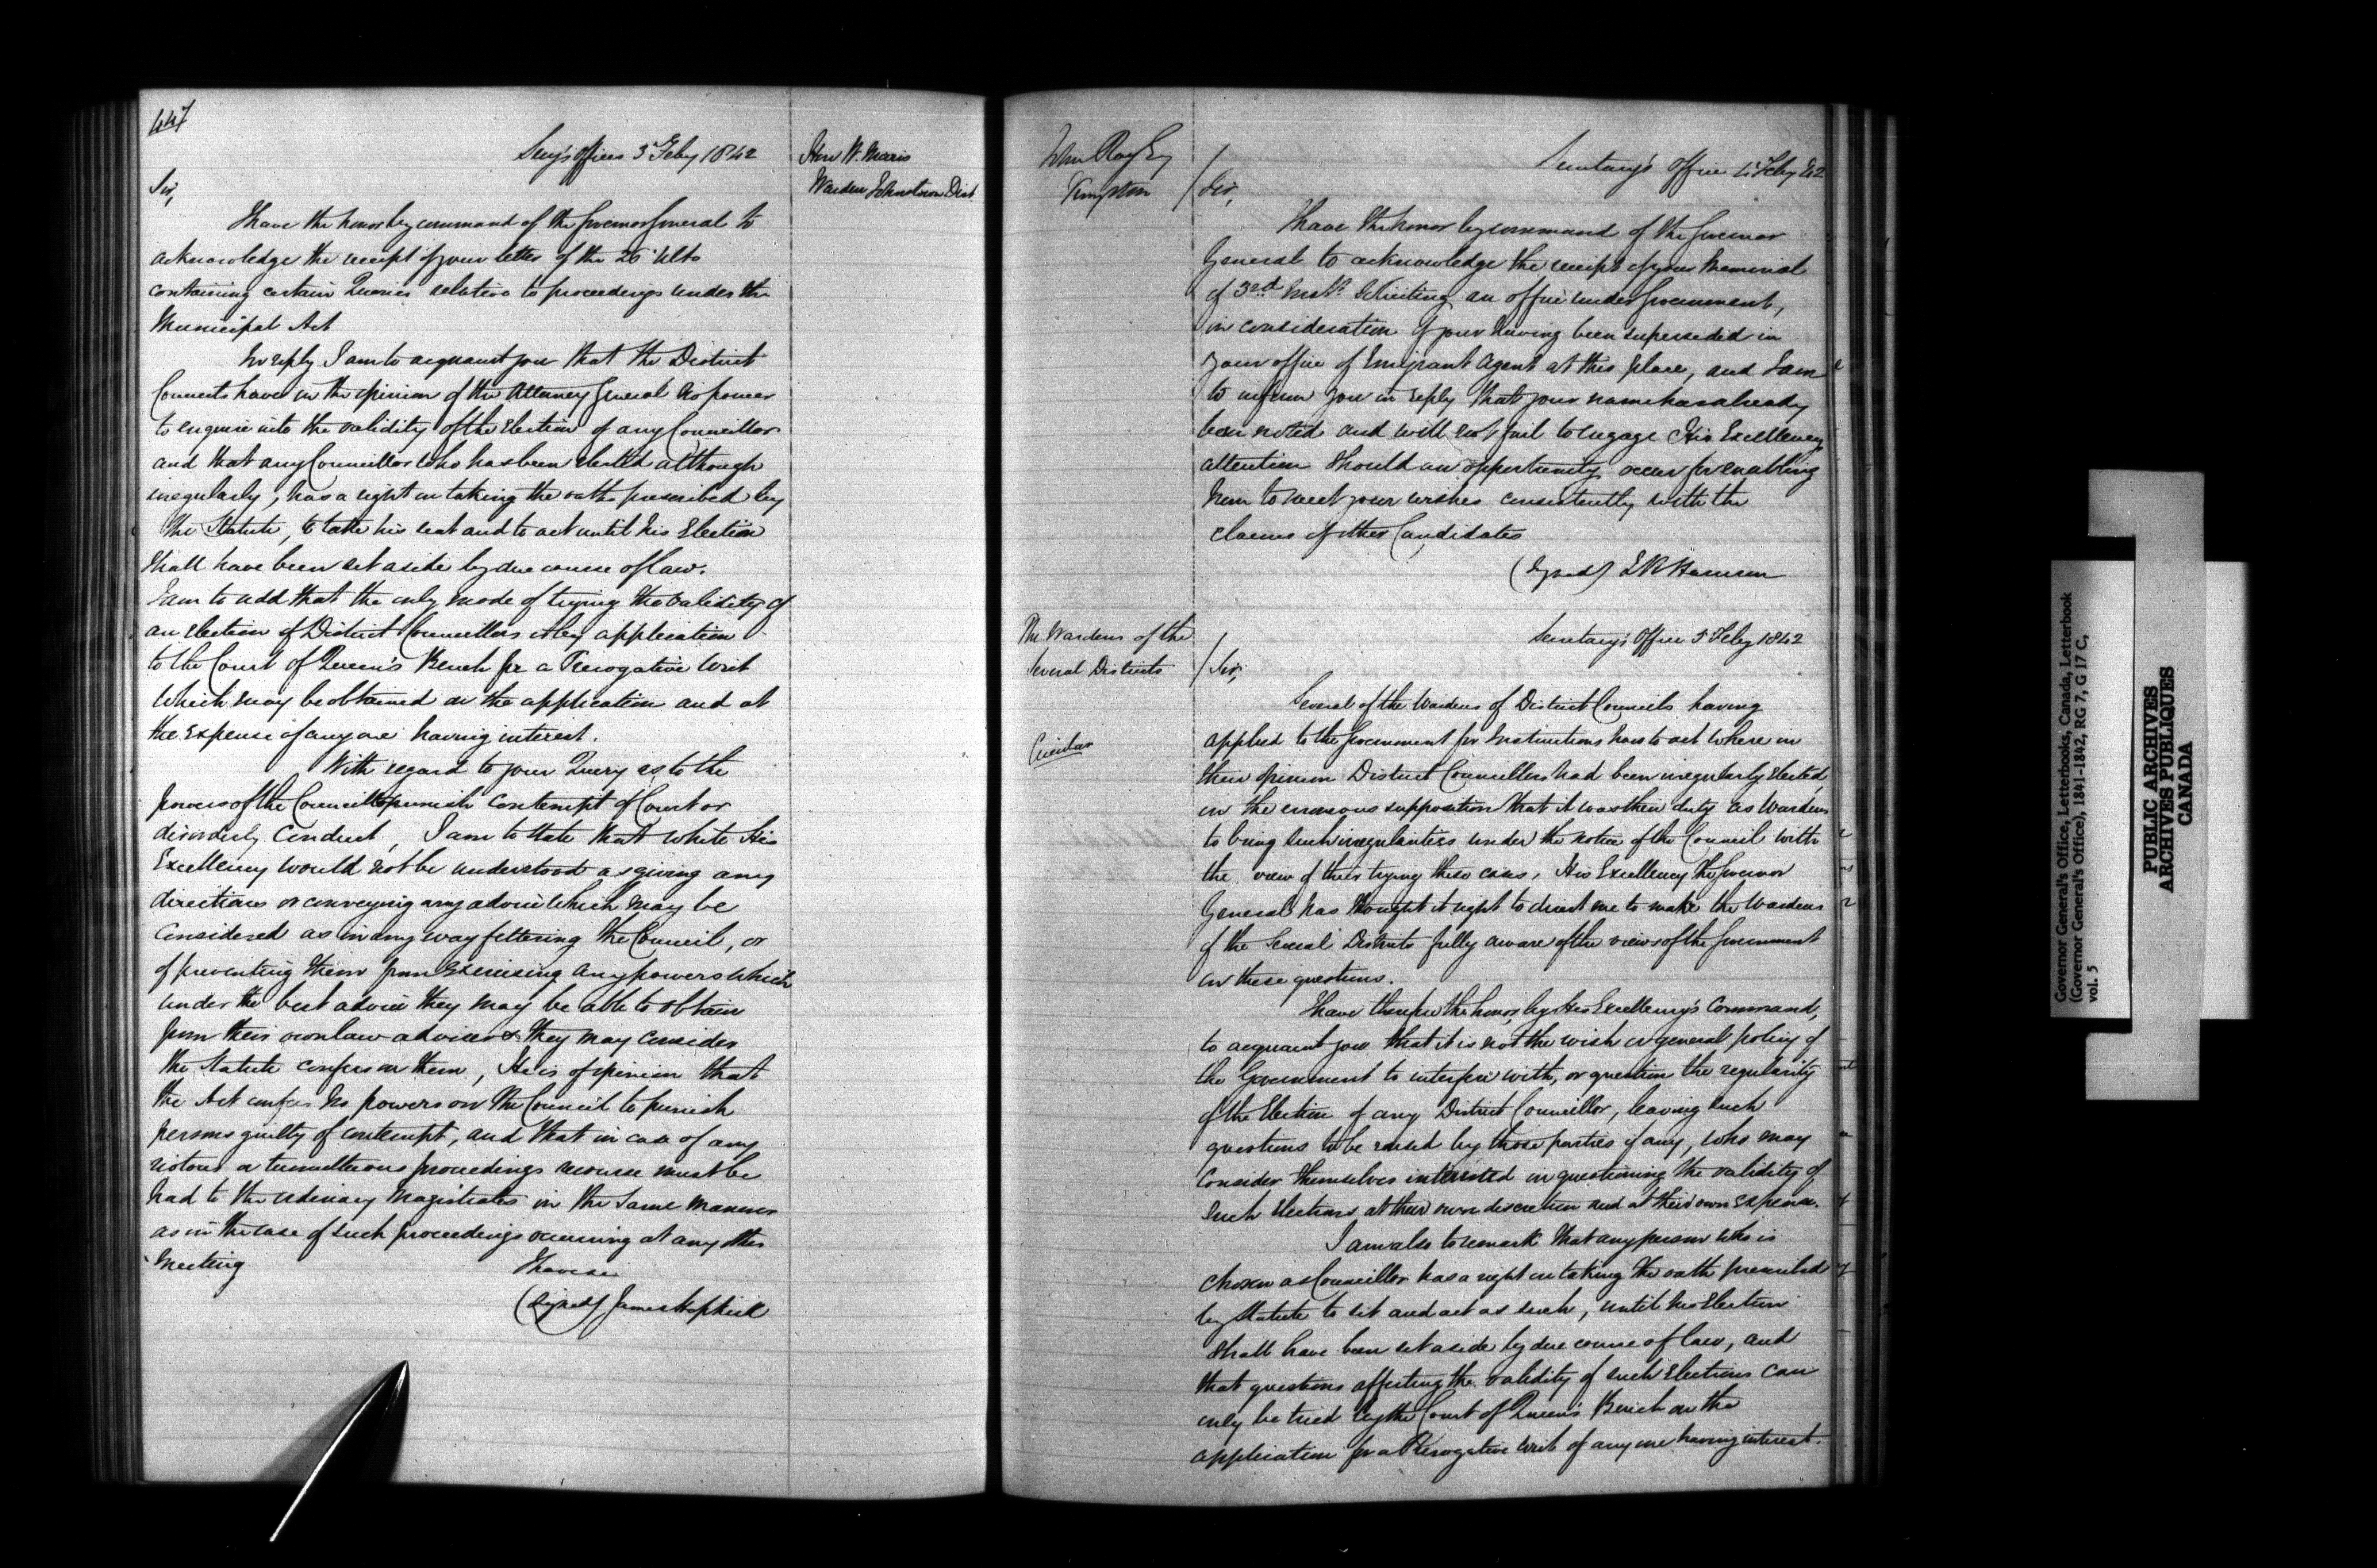 447
Secy's Office 3 Feby 1842
Hon W. Morris
Warden Johnstown Dist
Sir,
I have the honor by command of the Governor General to
acknowledge the receipt of your letter of the 26 Ulto
containing certain Queries relative to proceedings under the
Municipal Act
In reply I am to acquaint you that the District
Councils have in the opinion of the Attorney General no power
to enquire into the validity of the Election of any Councillor
and that any Councillor who has been elected although
irregularly, has a right on taking the oaths prescribed by
the Statute, to take his seat and to act until his Election
shall have been set aside by due course of law.
I am to add that the only mode of trying the validity of
an election of District Councillors is by application
to the Court of Queen's Bench for a Prerogative Writ
which may be obtained on the application and at
the expense of any one having interest.
With regard to your Query as to the
powers of the Council to punish Contempt of Court or
disorderly Conduct, I am to state that while His
Excellency would not be understood as giving any
directions or conveying any advice which may be
considered as in any way fettering the Council, or
of preventing them from exercising any powers which
under the best advice they may be able to obtain
from their own law advisers they may consider
the Statute confers on them, He is of opinion that
the Act confers no powers on the Council to punish
persons guilty of contempt, and that in case of any
riotous or tumultuous proceedings recourse must be
had to the ordinary Magistrates in the same manner
as in the case of such proceedings occurring at any other
meeting
I have &c
(Signed) James Hopkirk
John Ray Esq
Kingston
Secretary's Office 4 Feby 42
Sir,
I have the honor by command of the Governor
General to acknowledge the receipt of your Memorial
of 3rd Inst. Soliciting an office under Government,
in consideration of your having been superseded in
your office of Emigrant Agent at this place, and I am
to inform you in reply that your name has already
been noted and will not fail to engage His Excellency's
attention should an opportunity occur for enabling
him to meet your wishes consistently with the
claims of other Candidates
(Signed)
The Wardens of the
Several Districts
Circular
Secretary's Office 5 Feby 1842
Sir,
Several of the Wardens of District Councils having
applied to the Government for Instructions how to act where in
their opinion District Councillors had been irregularly elected,
in the erroneous supposition that it was their duty as Wardens
to bring such irregularities under the notice of the Council with
the view of their trying these cases, His Excellency The Governor
General has thought it right to direct me to make the Wardens
of the Several Districts fully aware of the views of the Government
on these questions.
I have therefore the honor, by His Excellency's Command,
to acquaint you that it is not the wish or general policy of
the Government to interfere with, or question the regularity
of the Election of any District Councillor, leaving such
questions to be raised by those parties if any, who may
consider themselves interested in questioning the validity of
such Elections at their own discretion and at their own expense.
I am also to remark that any person who is
chosen as Councillor has a right on taking the oath prescribed
by Statute to sit and act as such, until his Election
shall have been set aside by due course of law, and
that questions affecting the validity of such Elections can
only be tried by the Court of Queen's Bench on the
application for a Prerogative Writ of any one having interest.
Governor General's Office, Letterbooks, Canada, Letterbook
(Governor General's Office), 1841-1842, RG 7, G 17 C,
vol. 5
PUBLIC ARCHIVES
ARCHIVES PUBLIQUES
CANADA